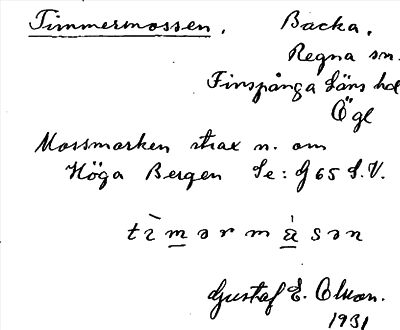 Timmermossen. Backa.
Regna sn.
Finspånga läns hd
Ögl
Mossmarken strax n. om
Höga Bergen Se: G 65 S.V.
tìmərmåsən
Gustaf E. Olson.
1931